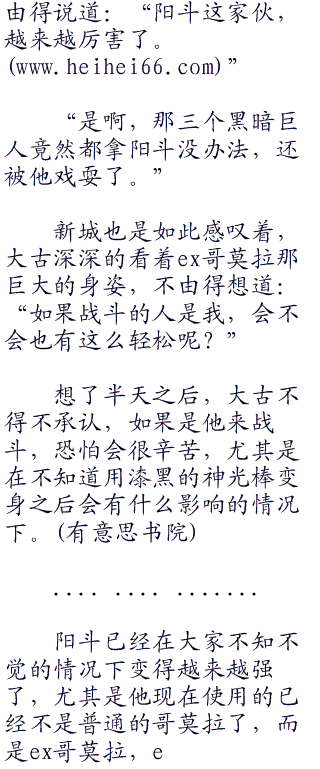 由得说道：“阳斗这家伙，
越来越厉害了。
(www.heihei66.com)”
“是啊，那三个黑暗巨
人竟然都拿阳斗没办法，还
被他戏耍了。”
新城也是如此感叹着，
大古深深的看着ex哥莫拉那
巨大的身姿，不由得想道：
“如果战斗的人是我，会不
会也有这么轻松呢？”
想了半天之后，大古不
得不承认，如果是他来战
斗，恐怕会很辛苦，尤其是
在不知道用漆黑的神光棒变
身之后会有什么影响的情况
下。(有意思书院)
.... .... .......
阳斗已经在大家不知不
觉的情况下变得越来越强
了，尤其是他现在使用的已
经不是普通的哥莫拉了，而
是ex哥莫拉，e